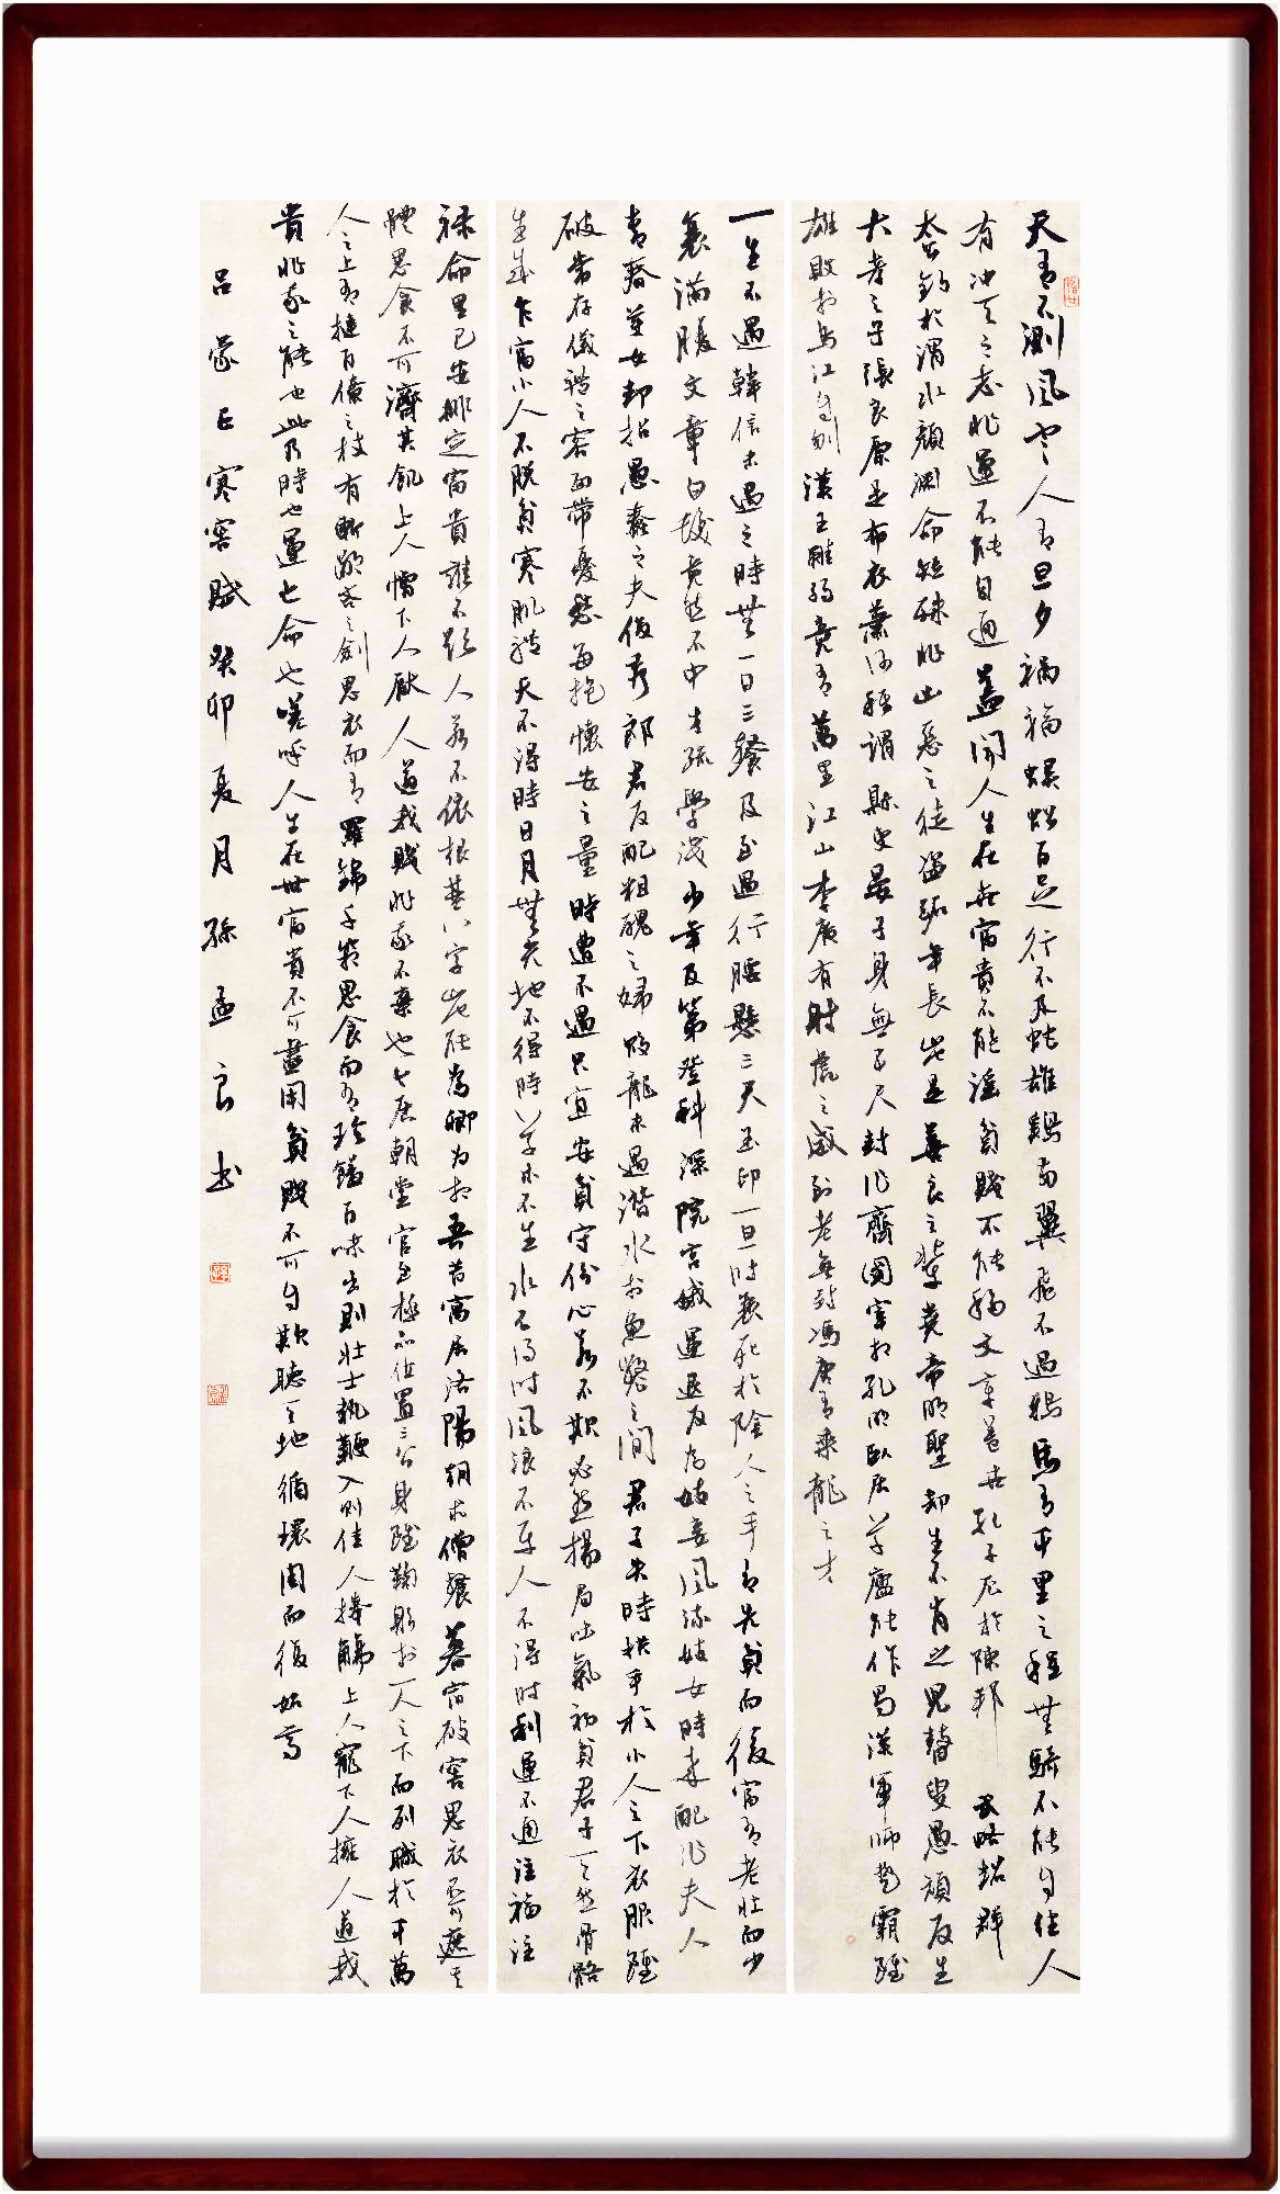 天有不測風雲人有旦夕禍福蜈蚣百足行不及蛇雄鷄兩翼飛不過鴉馬有千里之程無騎不能自往人
有冲天之志非運不能自通蓋聞人生在世富貴不能淫貧賤不能移文章蓋世孔子厄於陳邦武略超群
太公釣於渭水顏淵命短殊非凶惡之徒盜跖年長豈是善良之輩堯帝明聖却生不肖之兒瞽叟愚頑反生
大孝之子張良原是布衣蕭何稱謂縣吏晏子身無五尺封作齊國宰相孔明臥居草廬能作蜀漢軍師楚霸雖
雄敗於烏江自刎漢王雖弱竟有萬里江山李廣有射虎之威到老無封馮唐有乘龍之才
一生不遇韓信未遇之時無一日三餐及至遇行腰懸三尺玉印一旦時衰死於陰人之手有先貧而後富有老壯而少
衰滿腹文章白髮竟然不中才疏學淺少年及第登科深院宮娥運退反為妓妾風流妓女時來配作夫人
青春美女却招愚蠢之夫俊秀郎君反配粗醜之婦蛟龍未遇潛水於魚鱉之間君子失時拱手於小人之下衣服雖
破常存儀禮之容面帶憂愁每抱懷安之量時遭不遇只宜安貧守份心若不欺必然揚眉吐氣初貧君子天然骨骼
生成乍富小人不脫貧寒肌體天不得時日月無光地不得時草木不生水不得時風浪不平人不得時利運不通注福注
祿命里已安排定富貴誰不欲人若不依根基八字豈能為卿為相吾昔寓居洛陽朝求僧餐暮宿破窖思衣不可遮其
體思食不可濟其飢上人憎下人厭人道我賤非我不棄也今居朝堂官至極品位置三公身雖鞠躬於一人之下而列職於千萬
人之上有撻百僚之杖有斬鄙吝之劍思衣而有羅錦千箱思食而有珍饈百味出則壯士執鞭入則佳人捧觴上人寵下人擁人道我
貴非我之能也此乃時也運也命也嗟呼人生在世富貴不可盡用貧賤不可自欺聽天地循環周而復始焉
呂蒙正寒窖賦癸卯夏月孫孟良书